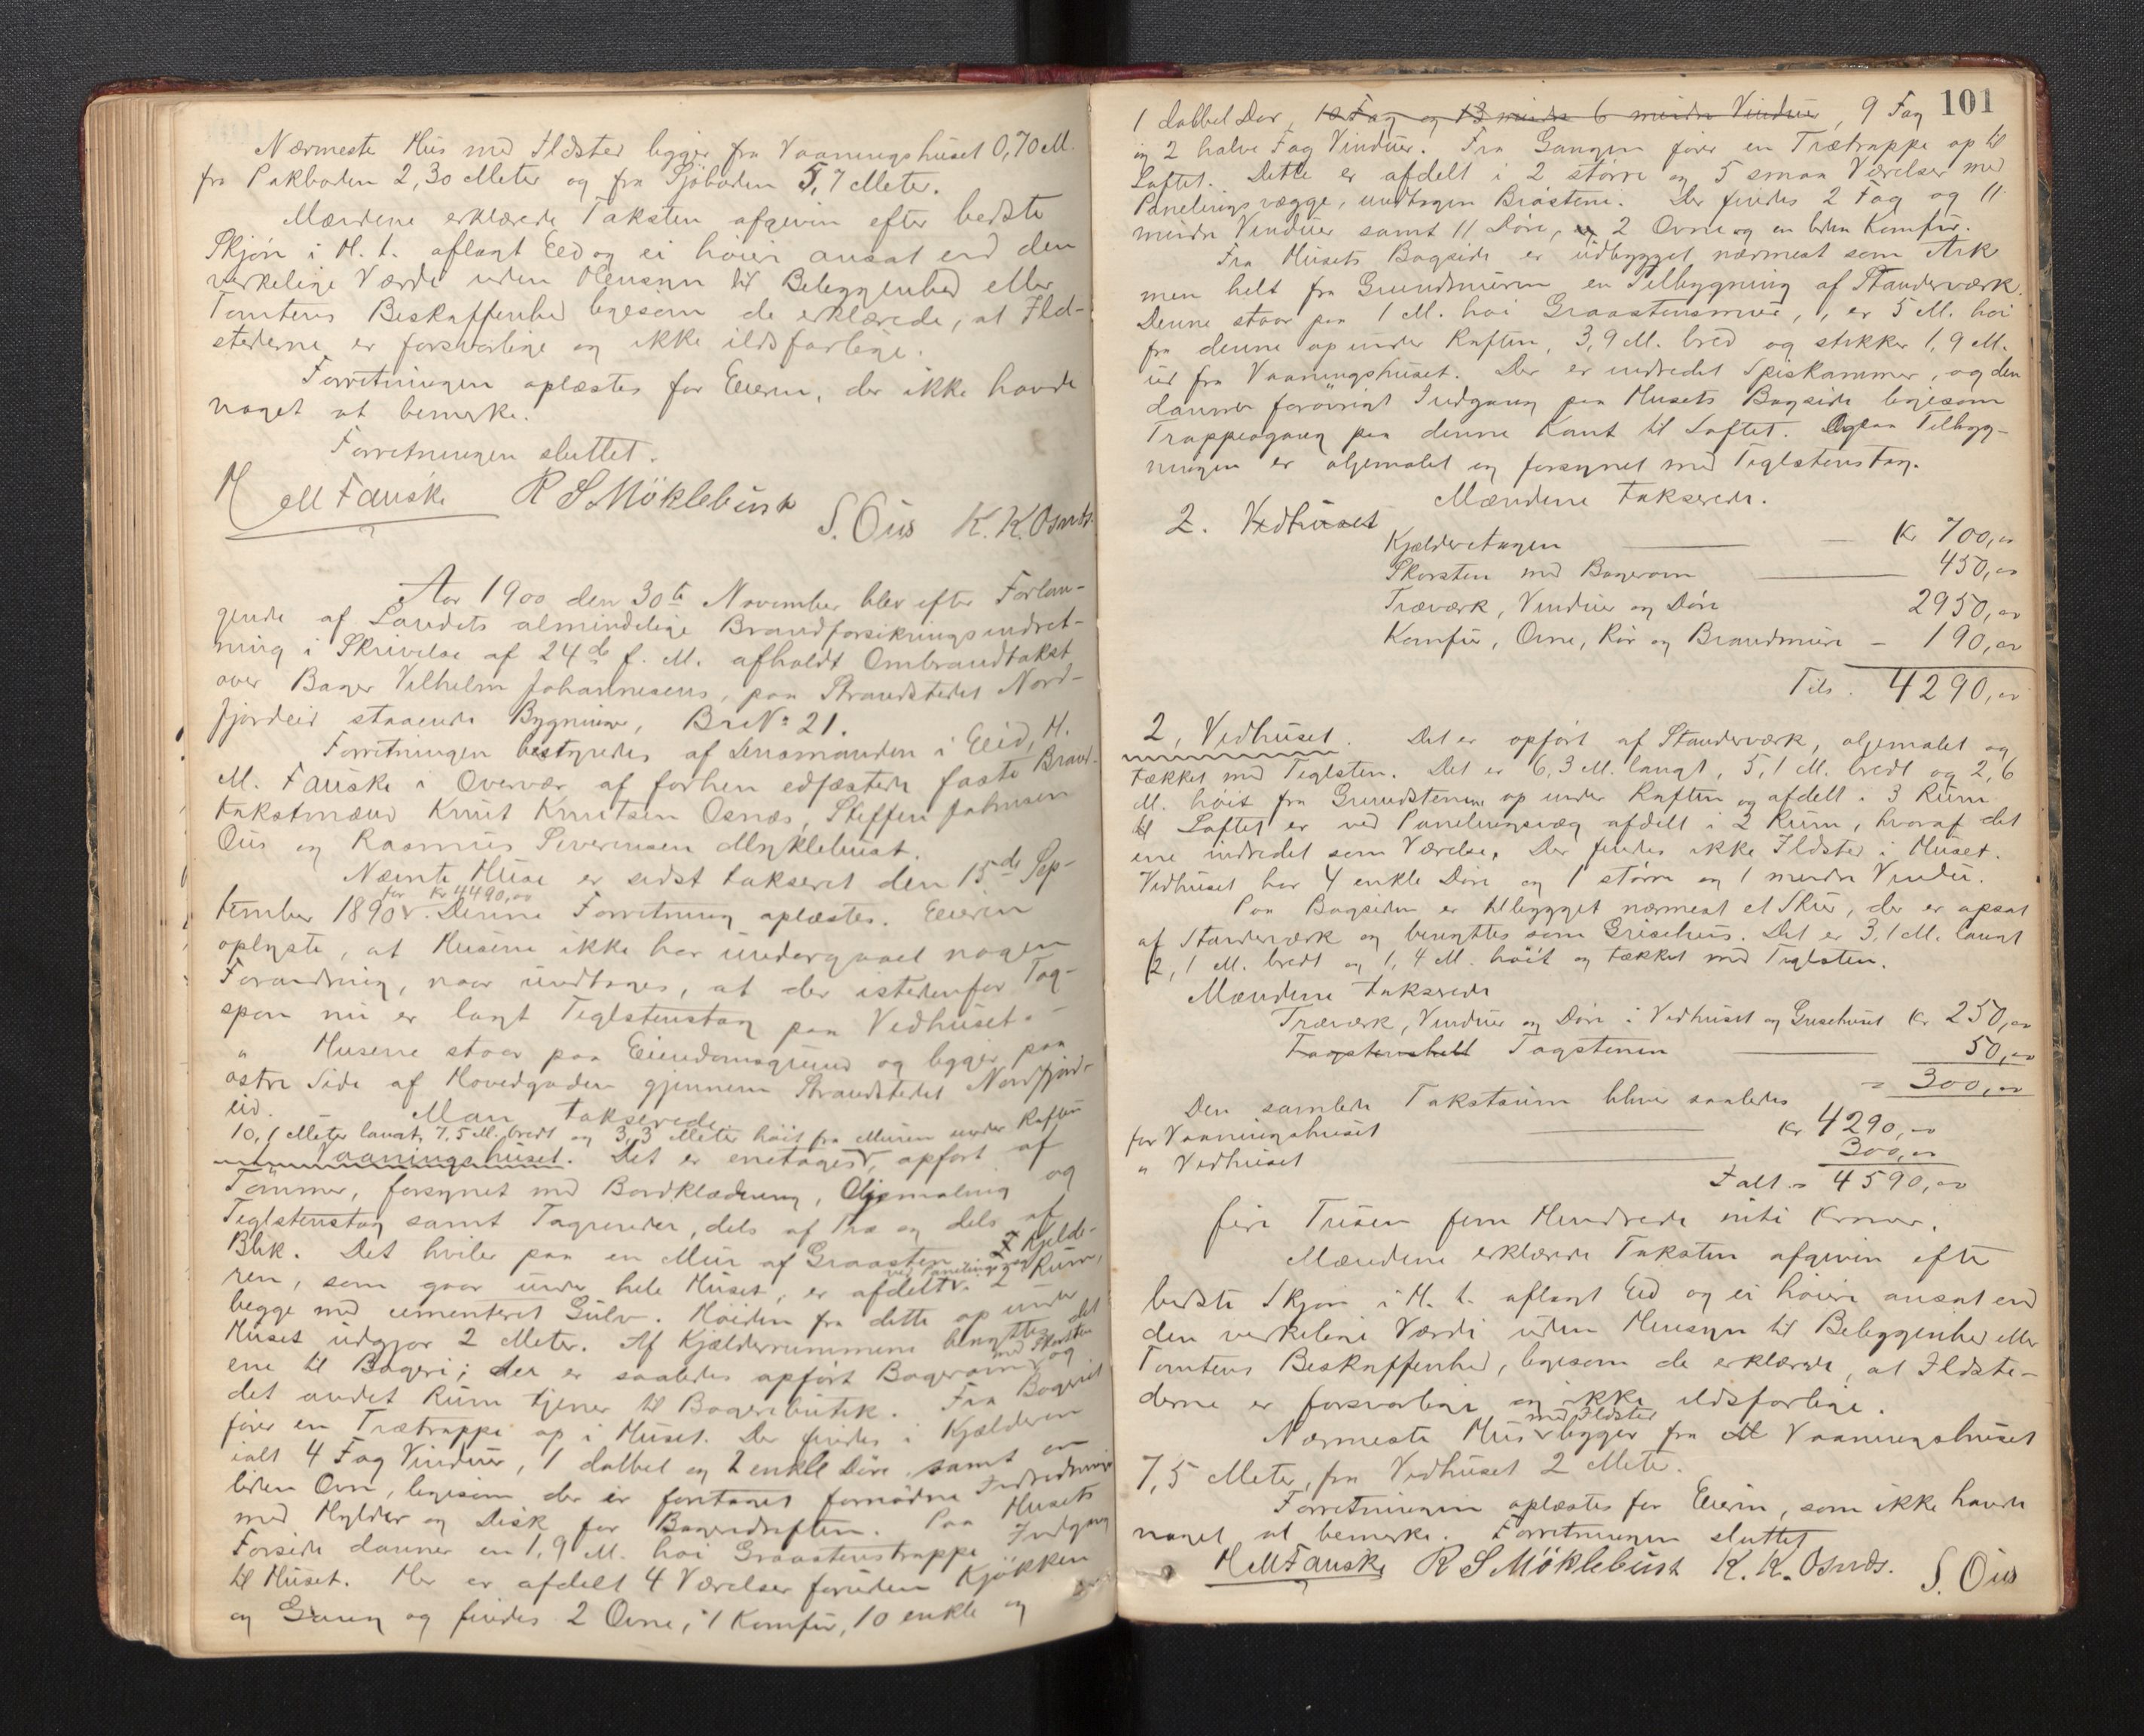 Nærmeste Hus med Ildsted ligger fra Vaaningshuset 0,70 M.
fra Pakboden 2,30 Meter og fra Sjøboden 5,7 Meter.
Mændene erklærede Taksten afgiven efter bedste
Skjøn i H. t. aflagt Eed og ei høiere ansat end den
virkelige Værdi uden Hensyn til Beliggenhed eller
Tomtens Beskaffenhed ligesom de erklærede, at Ild-
stederne er forsvarlige og ikke ildsfarlige.
Forretningen oplæstes for Eieren, der ikke havde
noget at bemerke.
Forretningen sluttet.
H M Fauske R S Möklebust S. Ous K. K. Osnæs.
Aar 1900 den 30te November blev efter Forlan-
gende af Landets almindelige Brandforsikringsindret-
ning i Skrivelse af 24de f. M. afholdt Ombrandtakst
over Bager Vilhelm Johannesens, paa Strandstedet Nord-
fjordeid staaende Bygninger, Br. No 21.
Forretningen bestyredes af Lensmanden i Eeid, H.
M. Fauske i Overvær af forhen edfæstede faste Brand-
takstmænd Knut Knutsen Osnæs, Steffen Johnsen
Ous og Rasmus Severinsen Myklebust.
Nævnte Huse er sidst takseret den 15de Sep-
for Kr 4490,00
tember 1890. Denne Forretning oplæstes. Eieren
oplyste, at Husene ikke har undergaaet nogen
Forandring, naar undtages, at der istedenfor Tag-
spon nu er lagt Teglstenstag paa Vedhuset. -
" Husene staar paa Eiendomsgrund og ligger paa
østre Side af Hovedgaden gjennem Strandstedet Nordfjord-
eid. Man takserede
10,1 Meter langt, 7,5 M. bredt og 3,3 Meter høit fra Muren under Raften
1. Vaaningshuset. Det er enetages, opført af
Tømmer, forsynet med Bordklædning, Oljemaling og
Teglstenstag samt Tagrender, dels af Træ og dels af
Blik. Det hviler paa en Mur af Graasten. Kjelde-
ved Panelingsvæg
ren, som gaar under hele Huset, er afdelt i 2 Rum,
begge med cementeret Gulv. Høiden fra dette op under
Huset udgjør 2 Meter. Af Kjælderrummene benyttes det
med Skorsten
ene til Bageri; der er saaledes opført Bagerovn og
det andet Rum tjener til Bageributik. Fra Bageriet
fører en Trætrappe op i Huset. Der findes i Kjælderen
ialt 4 Fag Vinduer, 1 dobbel og 2 enkle Døre samt en
liden Ovn, ligesom der er foretaget fornødne Indredninger
med Hylder og Disk for Bageridriften. Paa Husets
Forside danner en 1,9 M. høi Graastenstrappe Indgang
til Huset. Her er afdelt 4 Værelser foruden Kjøkken
og Gang og findes 2 Ovne, 1 Komfur, 10 enkle og
101
1 dobbel Dør, 12 Fag og 13 mindre 6 mindre Vinduer, 9 Fag
og 2 halve Fag Vinduer. Fra Gangen fører en Trætrappe op til
Loftet. Dette er afdelt i 2 større og 5 smaa Værelser med
Panelingsvægge, undtagen Brøstene. Der findes 2 Fag og 11
mindre Vinduer samt 11 Døre, 2 Ovne og en liden Komfur.
Fra Husets Bagside er udbygget nærmest som Ark
men helt fra Grundmuren en Tilbygning af Standerværk.
Denne staar paa 1 M. høi Graastensmur, er 5 M. høi
fra denne op under Raften, 3,9 M. bred og stikker 1,9 M.
ud fra Vaaningshuset. Der er indredet Spiskammer, og den
danner forøvrigt Indgang paa Husets Bagside ligesom
Trappeogang paa denne Kant til Loftet. Ogsaa Tilbyg-
ningen er oljemalet og forsynet med Teglstenstag.
Mændene takserede.
2. Vedhuset
Kjælderetagen — Kr 700,00
Skorsten med Bagerovn — 450,00
Træværk, Vinduer og Døre 2950,00
Komfur, Ovne, Rør og Brandmure - 190,00
Tils. 4290,00
2, Vedhuset. Det er opført af Standerværk, oljemalet og
tækket med Teglsten. Det er 6,3 M. langt, 5,1 M. bredt og 2,6
M. høit fra Grundstenene op under Raften og afdelt i 3 Rum
til Loftet er ved Panelingsvæg afdelt i 2 Rum, hvoraf det
ene indredet som Værelse. Der findes ikke Ildsted i Huset.
Vedhuset har 4 enkle Døre og 1 større og 1 mindre Vindu.
Paa Bagsiden er tilbygget nærmest et Skur, der er opsat
af Standerværk og benyttes som Grisehus. Det er 3,1 M. langt
2,1 M. bredt og 1,4 M. høit og tækket med Teglsten.
Mændene takserede
Træværk, Vinduer og Døre i Vedhuset og Grisehuset Kr 250,00
Tagstenshell Tagstenen — 50,00
= 300,00
Den samlede Takstsum bliver saaledes
for Vaaningshuset — Kr 4290,00
" Vedhuset — 300,00
Ialt = 4590,00
fire Tusen fem Hundrede niti Kroner.
Mændene erklærede Taksten afgiven efter
bedste Skjøn i H. t. aflagt Eed og ei høiere ansat end
den virkelige Værdi uden Hensyn til Beliggenhed eller
Tomtens Beskaffenhed, ligesom de erklærede, at Ildste-
derne er forsvarlige og ikke ildsfarlige.
med Ildsted
Nærmeste Hus ligger fra Vaaningshuset
7,5 Meter, fra Vedhuset 2 Meter.
Forretningen oplæstes for Eieren, som ikke havde
noget at bemerke. Forretningen sluttet
H M Fauske R S Möklebust K. K. Osnæs. S. Ous